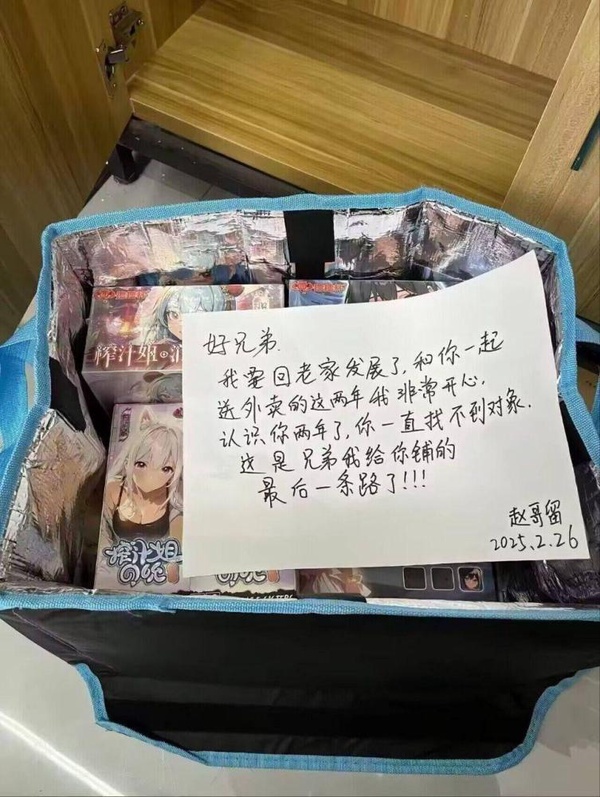 好兄弟
我要回老家发展了,和你一起
送外卖的这两年我非常开心.
认识你两年了,你一直找不到对象.
这是兄弟我给你铺的
最后一条路了!!!
赵哥留
2025.2.26
榨汁姐の
榨汁姐
の